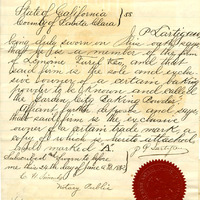 State of California } ss
County of Santa Clara }
J P Lartigau
being duly sworn on his oath says
that he is a member of the firm
of Lenoine
said firm is the sole and exclu-
sive of a certain
to be known and called
the Garden City Baking Powder
Affiant further deposes and says
that said firm is the exclusive
owner of a certain trade mark, a
copy of which is hereto attached
and marked "A".
Subscribed & sworn to before
me this 26th day of June A.D. 1883
Notary Public